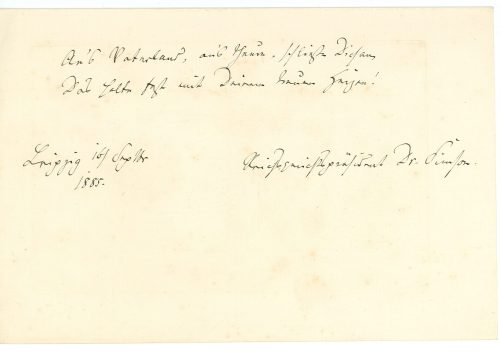 An's Vaterland, an's theure, schließ Dich an,
Das halte fest mit Deinem ganzen Herzen!
Leipzig 16/ Septbr
1885.
Reichsgerichtspräsident Dr. Simson.